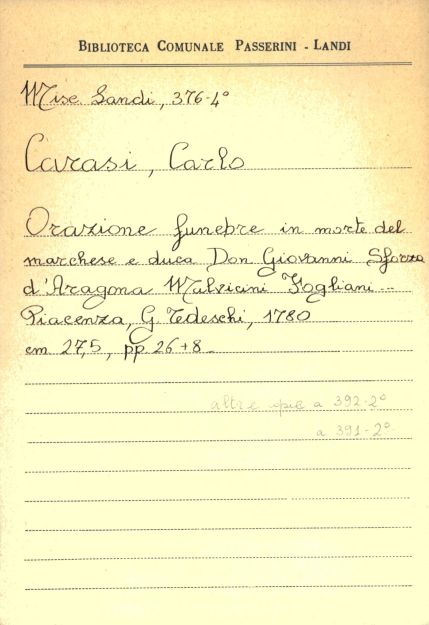 BIBLIOTECA COMUNALE PASSERINI - LANDI
Misc. Landi, 376-4°
Carasi, Carlo
Orazione funebre in morte del
marchese e duca Don Giovanni Sforza
d'Aragona Malvicini Fogliani...
Piacenza, G. Tedeschi, 1780
cm 27,5, pp. 26+8_
altre copie a 392-2°
a 391-2°